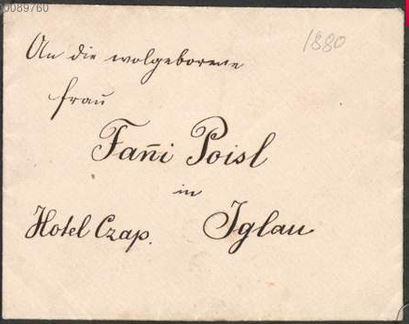 0089760
1880
An die wolgeborene
frau
Fañi Poisl
in
Hotel Czap. Iglau